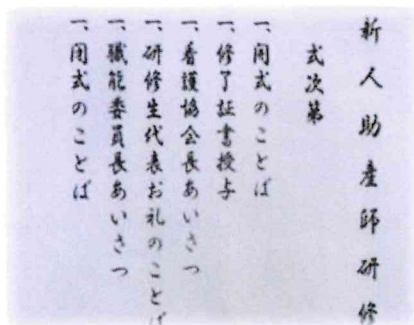 新人助産師研修
式次第
一、開式のことば
一、修了証書授与
一、看護協会長あいさつ
一、研修生代表お礼のことば
一、職能委員長あいさつ
一、閉式のことば